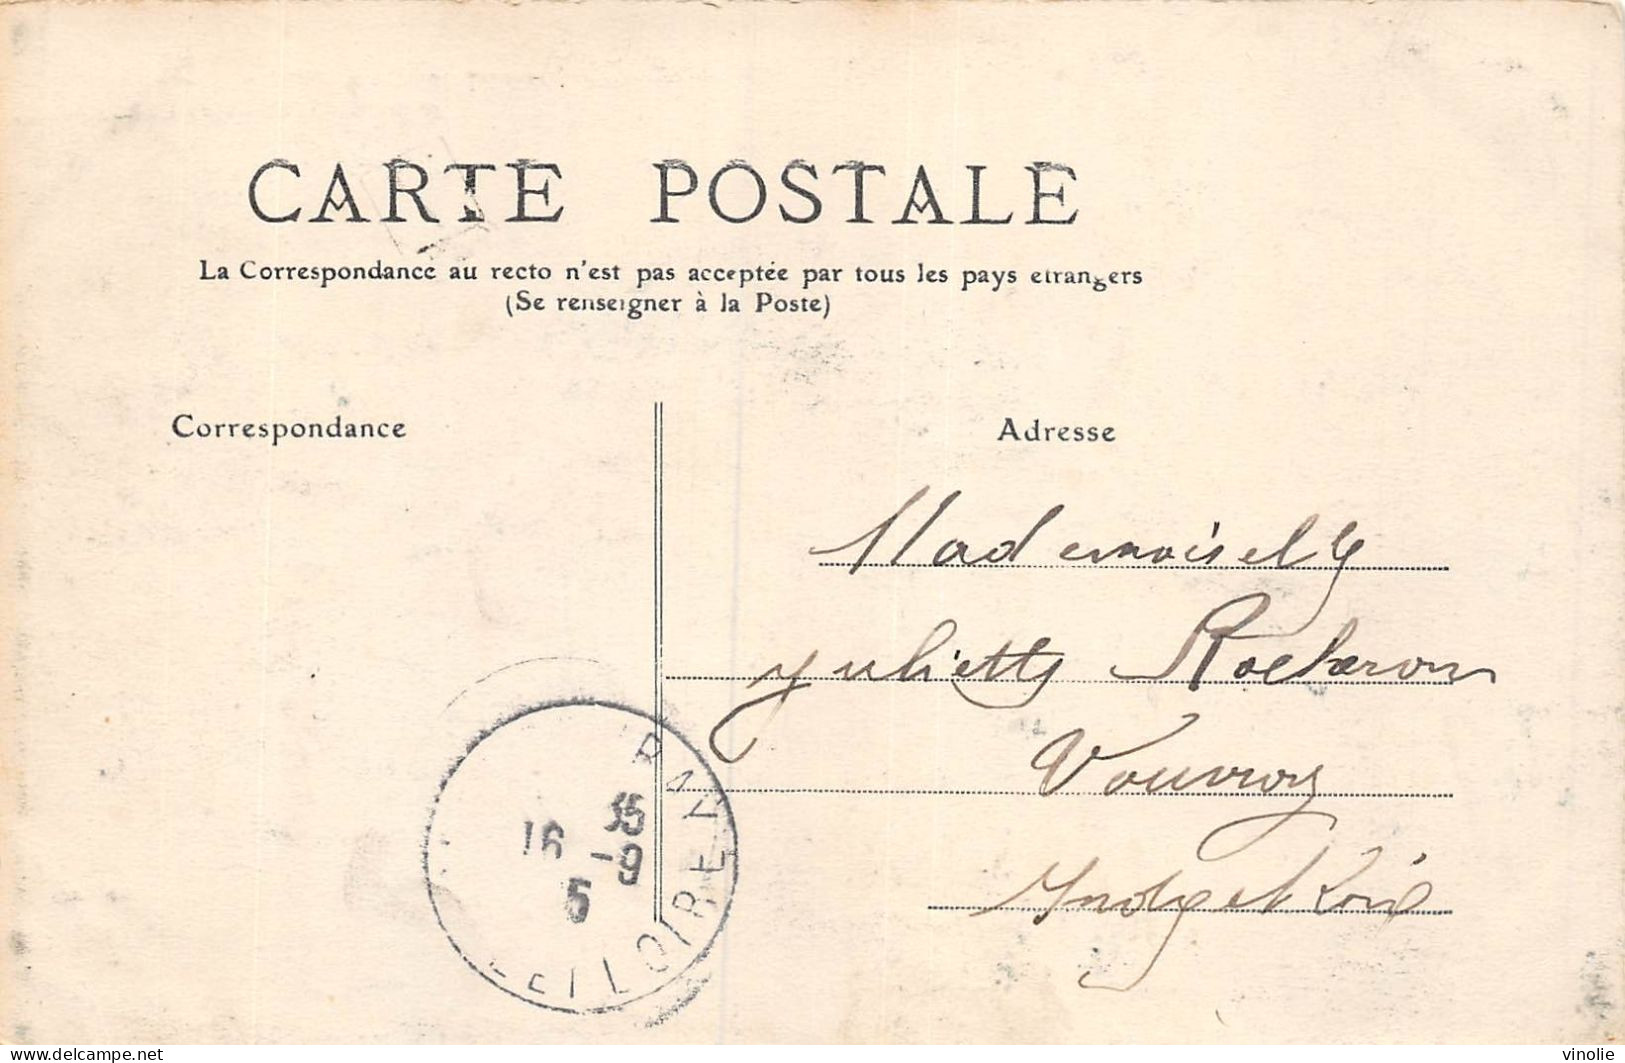 CARTE POSTALE
La Correspondance au recto n'est pas acceptée par tous les pays etrangers
(Se renseigner à la Poste)
Correspondance
Adresse
Mademoiselle
Juliette Rocheron
Vouvray
Indre et Loire
16 35
-9
5
ET LOIRE
delcampe.net
vinolie